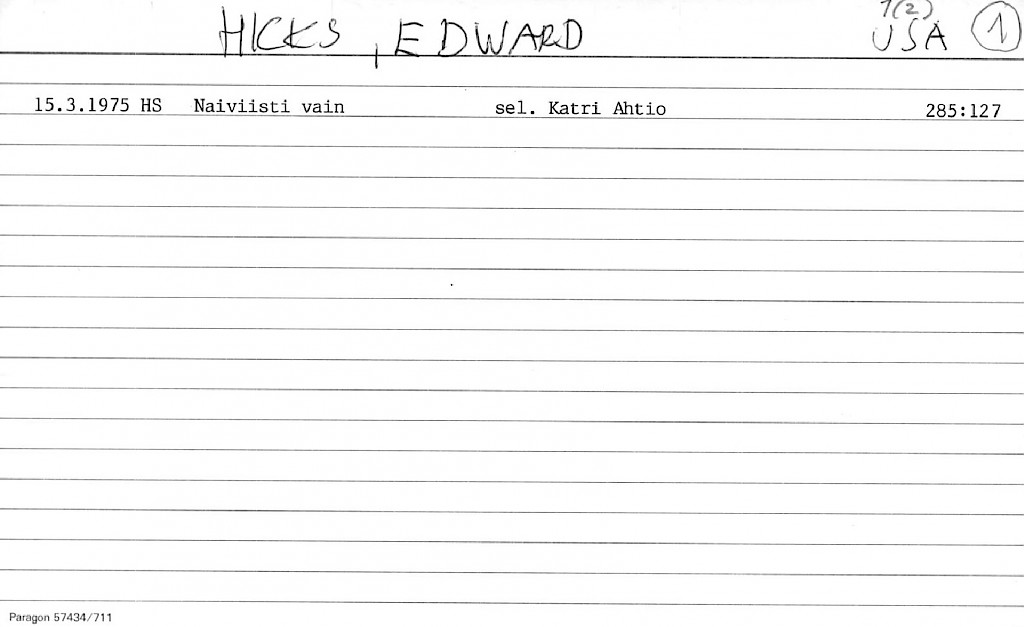 7(2)
HICKS, EDWARD USA 1
15.3.1975 HS Naiviisti vain sel. Katri Ahtio 285:127
Paragon 57434/711